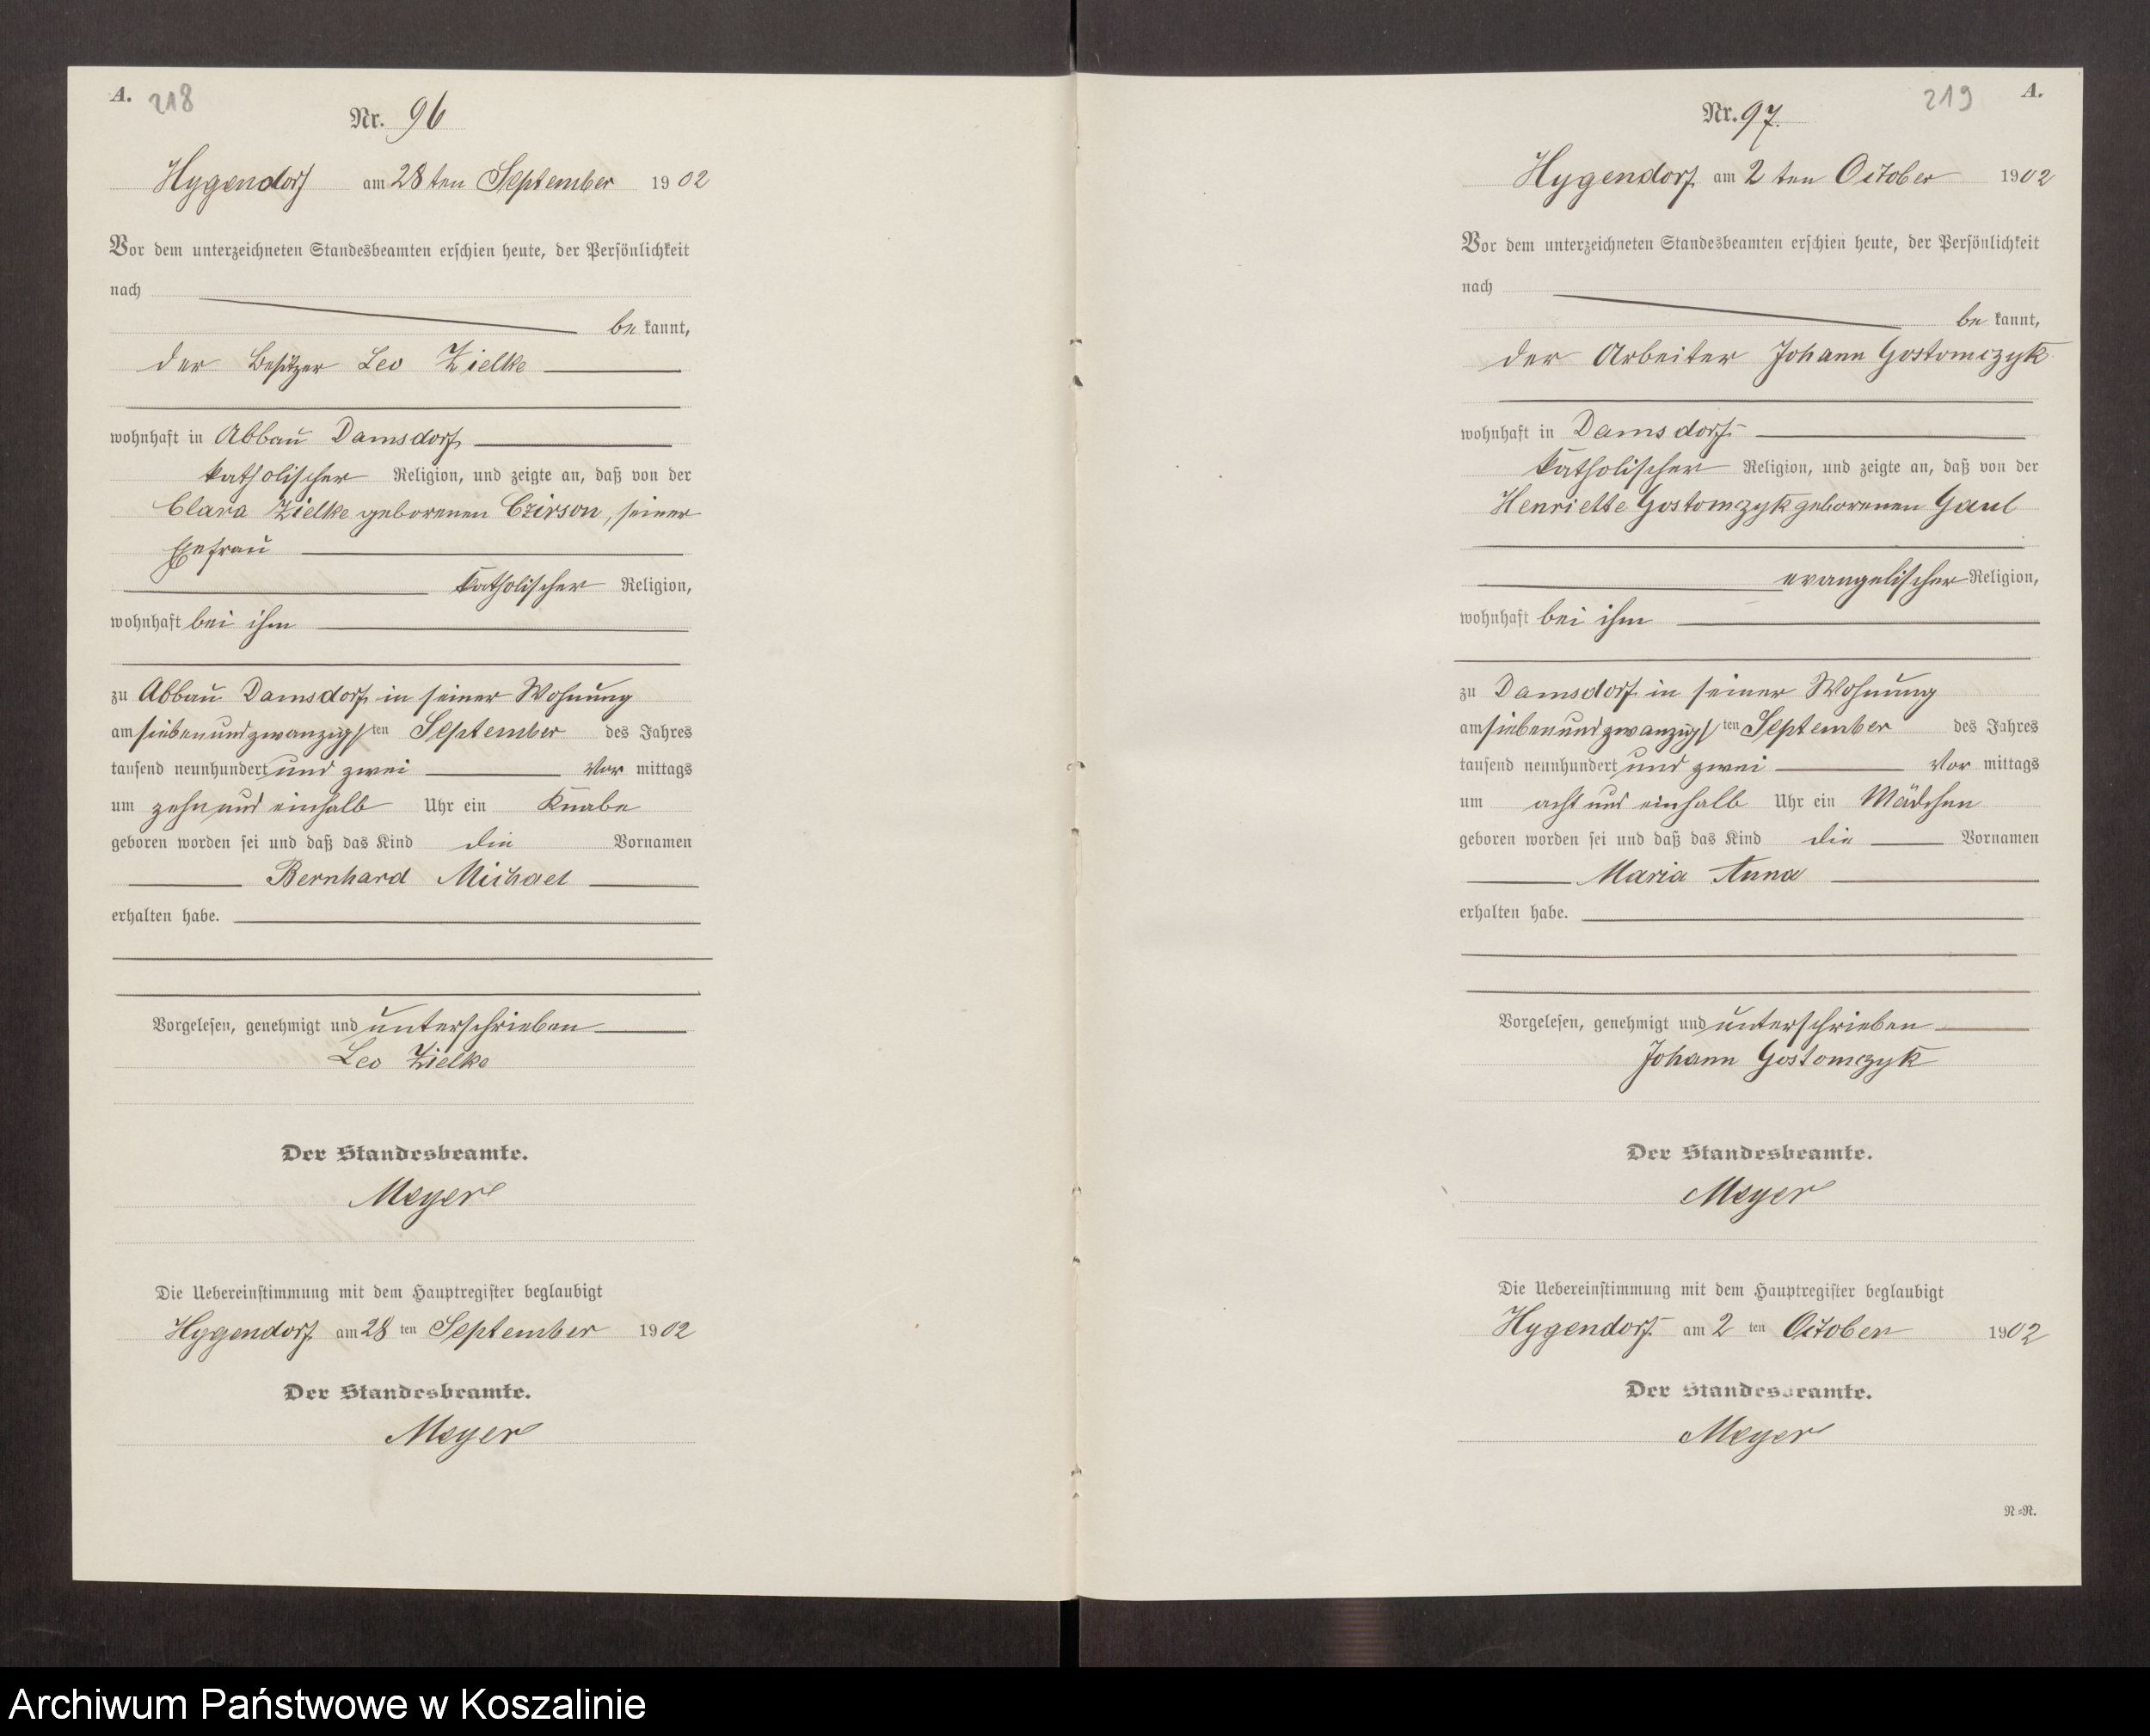 A. 218
Nr. 96
Hygendorf am 28ten September 1902
Vor dem unterzeichneten Standesbeamten erschien heute, der Persönlichkeit
nach
be kannt,
der Besitzer Leo Zielke
wohnhaft in Abbau Damsdorf
katholischer Religion, und zeigte an, daß von der
Clara Zielke geborenen Czirson, seiner
Ehefrau
katholischer Religion,
wohnhaft bei ihm
zu Abbau Damsdorf in seiner Wohnung
am siebenundzwanzigsten September des Jahres
tausend neunhundert und zwei Vor mittags
um zehn und einhalb Uhr ein Knabe
geboren worden sei und daß das Kind die Vornamen
Bernhard Michael
erhalten habe.
Vorgelesen, genehmigt und unterschrieben
Leo Zielke
Der Standesbeamte.
Meyer
Die Uebereinstimmung mit dem Hauptregister beglaubigt
Hygendorf am 28 ten September 1902
Der Standesbeamte.
Meyer
219 A.
Nr. 97.
Hygendorf am 2ten October 1902
Vor dem unterzeichneten Standesbeamten erschien heute, der Persönlichkeit
nach
be kannt,
der Arbeiter Johann Gostomczyk
wohnhaft in Damsdorf
katholischer Religion, und zeigte an, daß von der
Henriette Gostomczyk geborenen Gaul
evangelischer Religion,
wohnhaft bei ihm
zu Damsdorf in seiner Wohnung
am siebenundzwanzigsten September des Jahres
tausend neunhundert und zwei Vor mittags
um acht und einhalb Uhr ein Mädchen
geboren worden sei und daß das Kind die Vornamen
Maria Anna
erhalten habe.
Vorgelesen, genehmigt und unterschrieben
Johann Gostomczyk
Der Standesbeamte.
Meyer
Die Uebereinstimmung mit dem Hauptregister beglaubigt
Hygendorf am 2 ten October 1902
Der Standesbeamte.
Meyer
N=N.
Archiwum Państwowe w Koszalinie